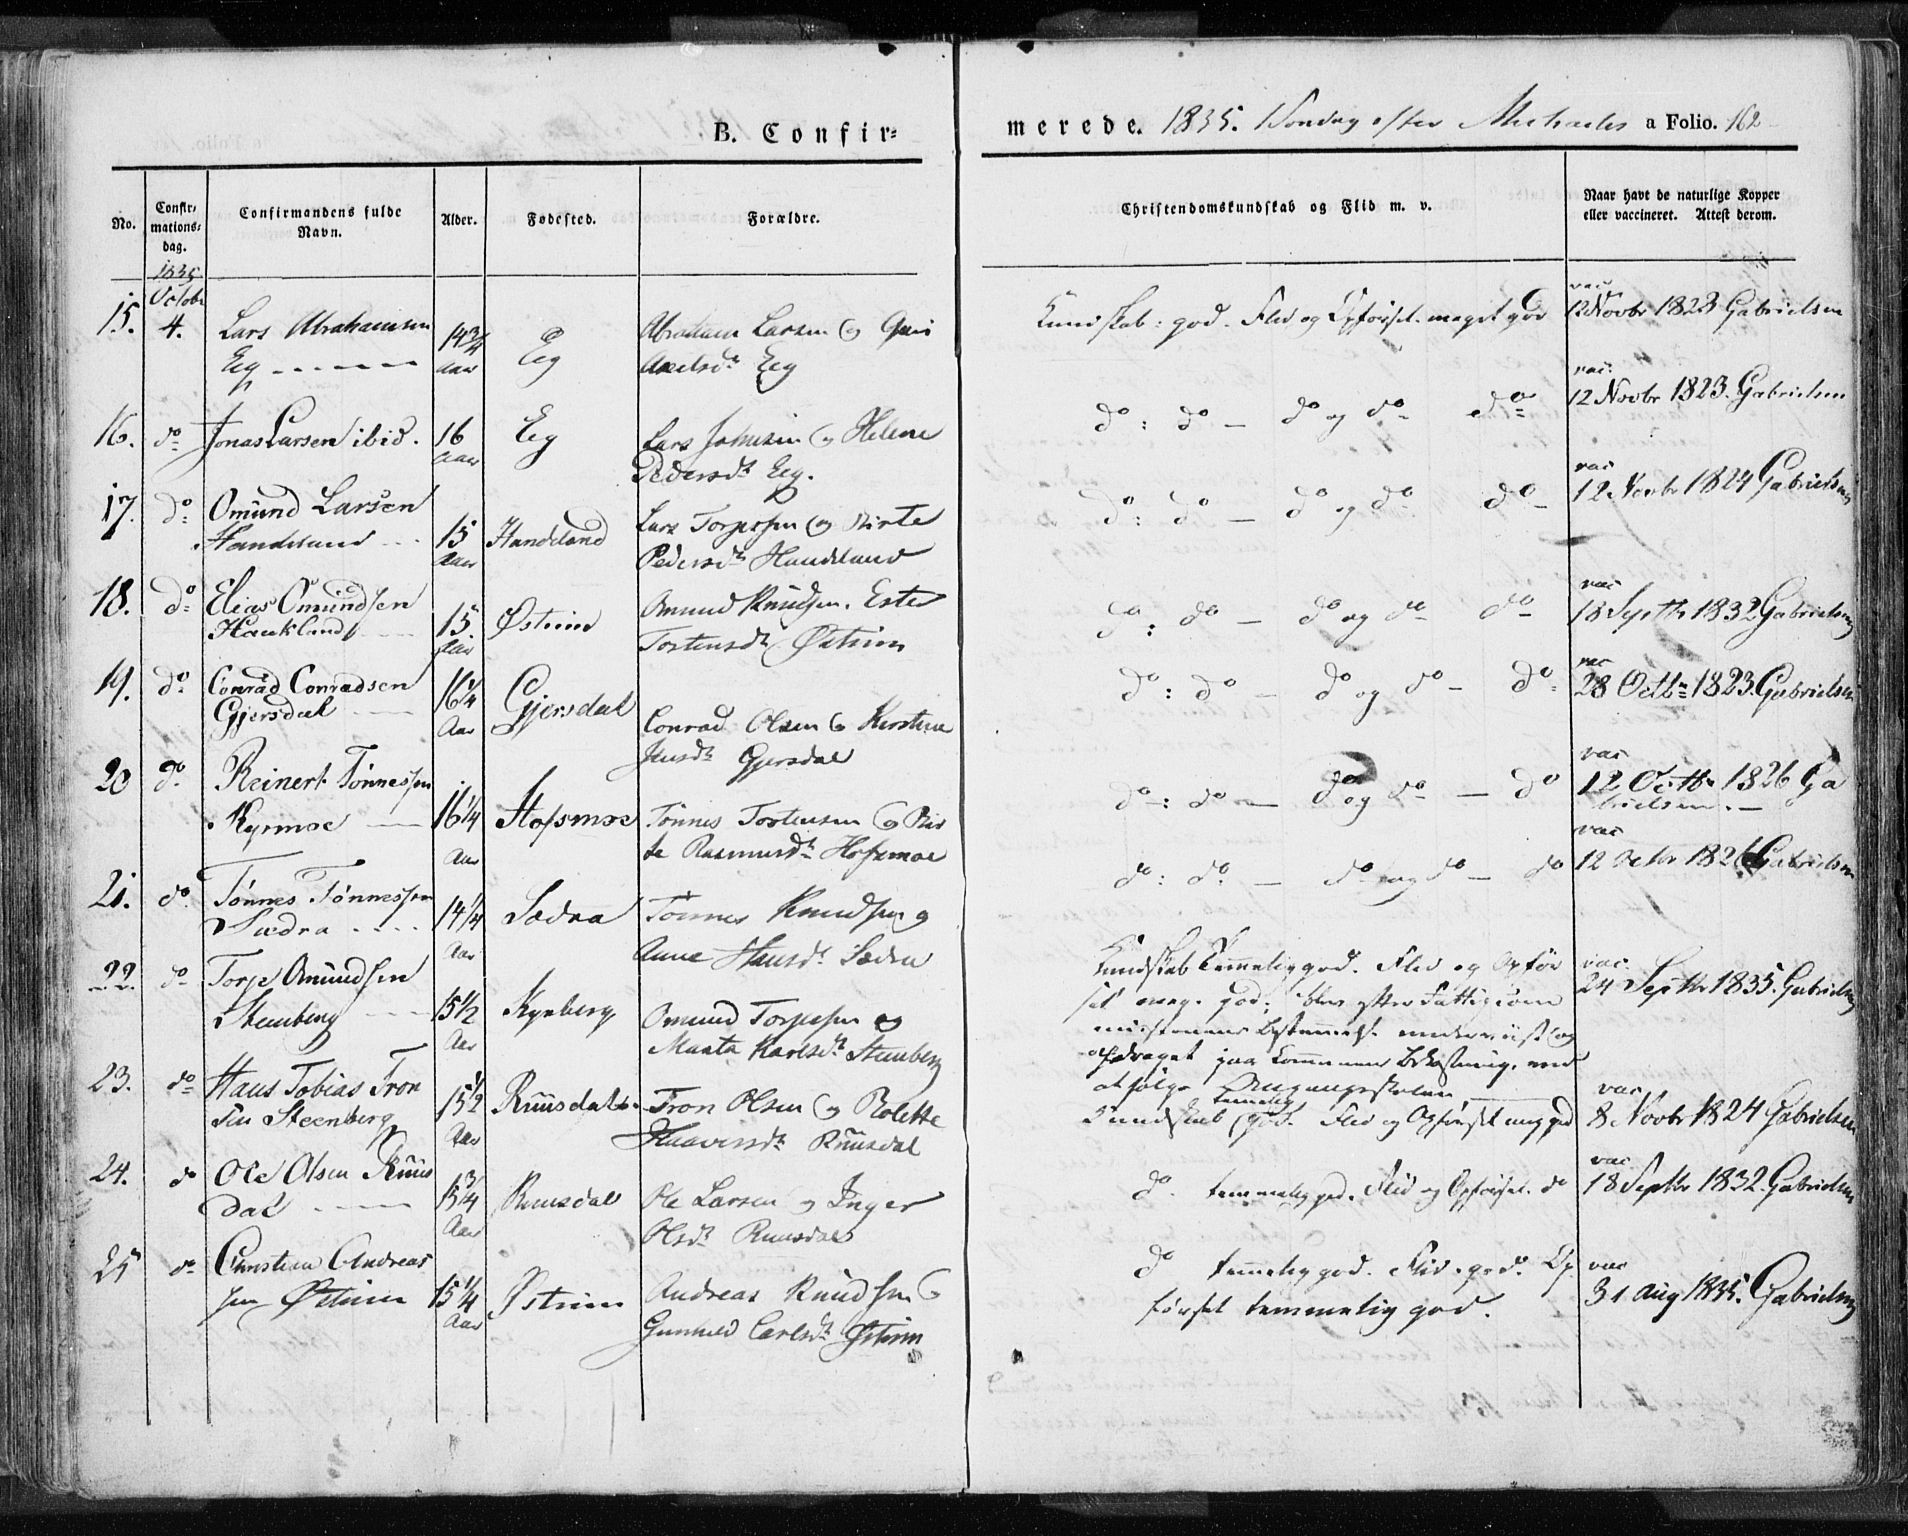 B. Confir=
merede. 1835. Søndag efter Michaelis a Folio. 162
No.
Confir=
mations=
dag.
Confirmandens fulde
Navn.
Alder.
Fødested.
Forældre.
Christendomskundskab og Flid m. v.
Naar havt de naturlige Kopper
eller vaccineret. Attest derom.
1835
Octobr
15. 4. Lars Abrahamsen
Eeg
14 3/4
Aar
Eeg
Abraham Larsen og
Axelsdt Eeg
Kundskab: god. Flid og Opførsel meget god
vac
12 Novbr 1823 Gabrielsen
16. do Jonas Larsen ibid.
16
Aar
Eeg
Lars Johnsen og Helene
Pedersdt Eeg.
do : do — do og do do
vac
12 Novbr 1823. Gabrielsen
17. do Omund Larsen
Handeland
15
Aar
Handeland
Lars Torgersen og Birte
Pedersdt Handeland
do : do — do og do do
vac
12 Novbr 1824 Gabrielsen
18. do Elias Omundsen
Haukland
15
Aar
Østrim
Omund Knudsen. Ester
Tostensdt Østrim
do : do — do og do do
vac
18 Septbr 1832 Gabrielsen
19. do Conrad Conradsen
Gjersdal
16 1/4
Aar
Gjersdal
Conrad Olsen og Kirstine
Jensdt Gjersdal
do : do — do og do — do
vac
28 Octbr 1823. Gabrielsen
20 do Reinert Tønnessen
Kyrmoe
16 1/4
Aar
Hofsmoe
Tønnes Tostensen og Bir
te Rasmusdt Hofsmoe
do : do — do og do — do
vac
12 Octbr 1826 Ga
brielsen.
21. do Tønnes Tønnessen
Sædra
14 1/4
Aar
Sædra
Tønnes Knudsen og
Anne Hansdt Sædra
do : do — do og do — do
vac
12 Octbr 1826 Gabrielsen
22. do Torje Omundsen
Steenberg
15 1/2
Aar
Kyrberg
Omund Torjessen og
Marta Karlsdt Steenberg
Kundskab temmelig god. Flid og Opfør
sel meg. god; blev efter Fattigcom
missionens Bestemmelse underviist og
opdraget paa Communens Bekostning, ved
at følge Omgangsskolen.
vac.
24 Septbr 1835. Gabrielsen
23. do Hans Tobias Tron
sen Steenberg
15 1/2
Aar
Ruusdal.
Tron Olsen og Rolette
Haaversdt Ruusdal
temmelig
Kundskab god. Flid og Opførsel meg god
vac
8 Novbr 1824 Gabrielsen
24. do Ole Olsen Ruus
dal
15 3/4
Aar
Ruusdal
Ole Larsen og Inger
Olsdt Ruusdal
do. temmelig god. Flid og Opførsel. do
vac
18 Septbr 1832. Gabrielsen
25 do Christian Andreas
sen Østrim
15 1/4
Aar
Østrim
Andreas Knudsen og
Gunhild Carlsdt Østrim
do temmelig god. Flid. god. Op
førsel temmelig god.
vac
31 Aug 1835. Gabrielsen